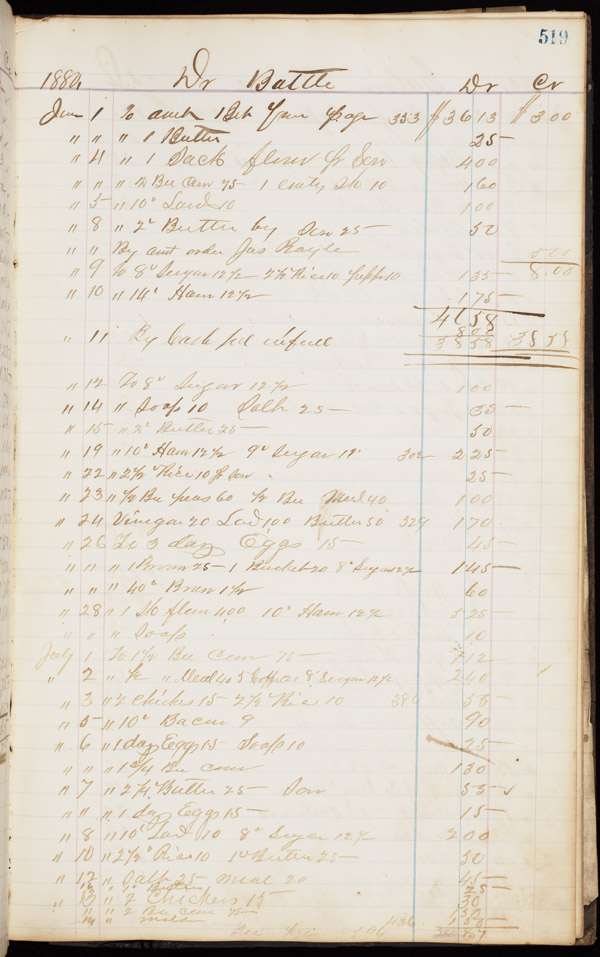 519
1884 Dr Battle Dr Cr
June 1 To amt Bek from page 353 $36 13 $3 00
" " " 1 Butter 25
" 4 " 1 Sack flour pr Son 400
" " " 2 Bu Corn 75 1 10 160
" 5 " 10# Lard 10 100
" 8 " 2# Butter by Son 25 50
" " By amt order Jas Rayle 500
" 9 To 8# Sugar 12½ 2½ Rice 10 pepper 10 135 8.00
" 10 " 14# Ham 12½ 175
4658
800
" 11 By Cash pd in full 3858 3858
" 12 To 8# Sugar 12½ 100
" 14 " Soap 10 Salt 25 35
" 15 " 2# Butter 25 50
" 19 " 10# Ham 12½ 9# Sugar 11 302 225
" 22 " 2½ Rice 10 pr Son 25
" 23 " ½ Bu peas 60 ½ Bu Meal 40 100
" 24 Vinegar 20 Lard 100 Butter 50 324 170
" 26 To 3 doz Eggs 15 45
" " " 1 Broom 25 1 Bucket 20 8# Sugar 12½ 145
" " " 40# Bran 1½ 60
" 28 " 1 flour 400 10# Ham 12½ 525
" " " Soap 10
July 1 To 1½ Bu Corn 75 112
" 2 " " Needles 5 Coffee 8# Sugar 12½ 240
" 3 " 2 Chickes 15 2½# Rice 10 384 55
" 5 " 10# Bacon 9 90
" 6 " 1 doz Eggs 15 Soap 10 25
" " " 1¾ Bu corn 130
" 7 " 2¼ Butter 25 Son 55
" " " 1 doz Eggs 15 15
" 8 " 10# Lard 10 8# Sugar 12½ 200
" 10 " 2½# Rice 10 1# Butter 25 50
" 12 " Salt 25 meal 20 45
" " 1# Butter 25
13 " 2 Chickens 15 30
" " 2 Bu corn 75 150
" " 436